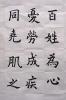 百姓為心
憂勞成疾
同堯肌之